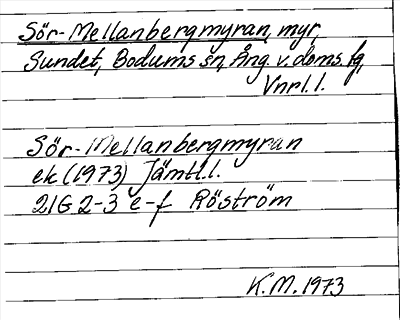 Sör-Mellanbergmyran, myr,
Sundet, Bodums sn, Ång. v. doms. fg,
Vnrl. l.
Sör-Mellanbergmyran
ek (1973) Jämtl. l.
21G 2-3 e-f Röström
K.M. 1973